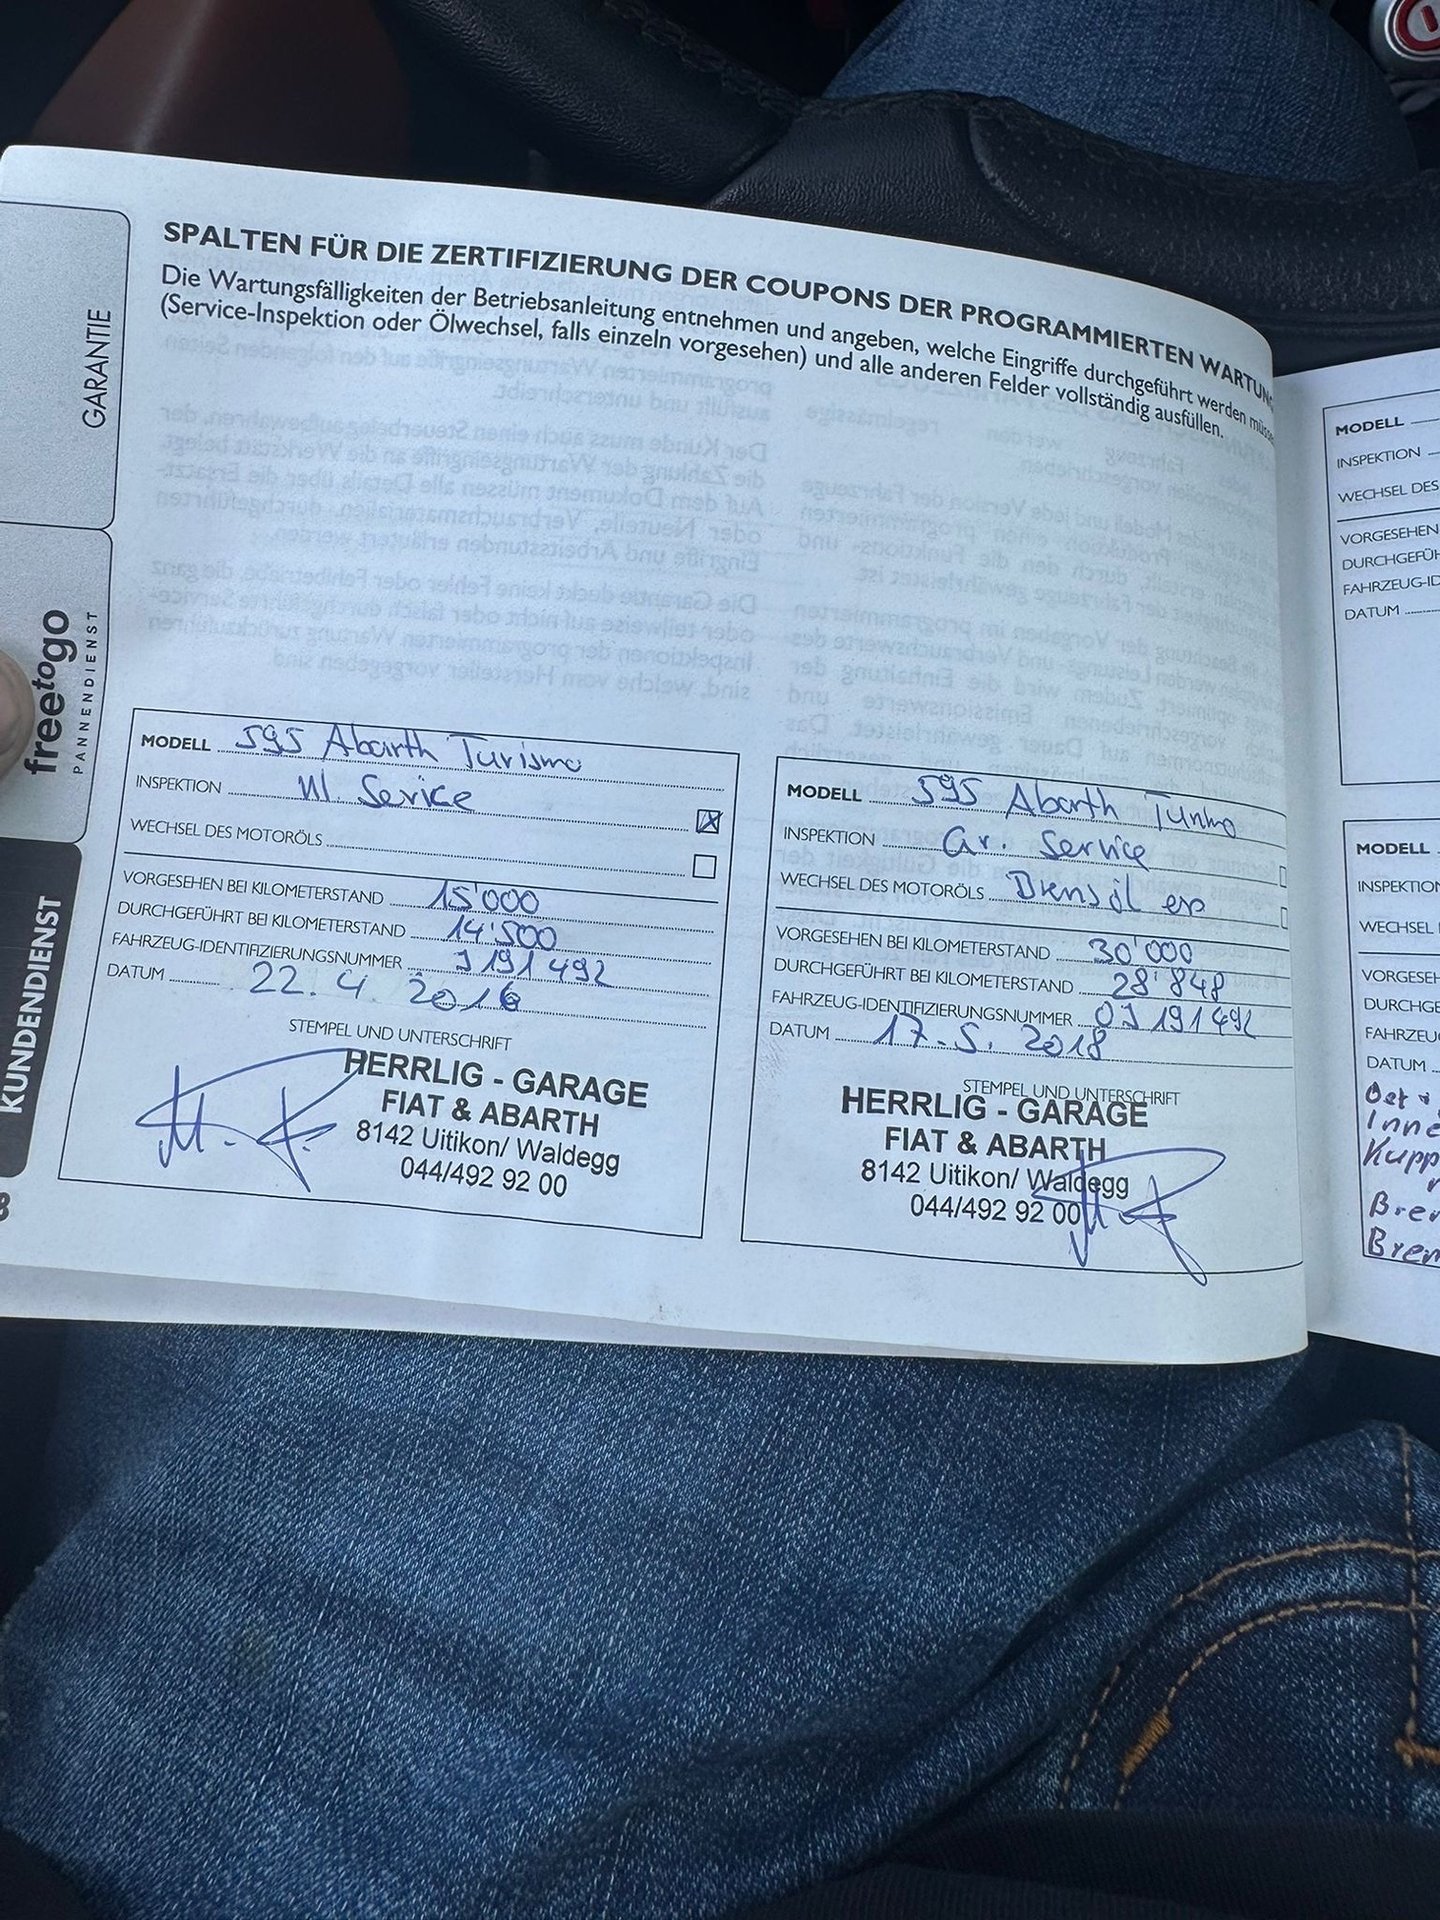 SPALTEN FÜR DIE ZERTIFIZIERUNG DER COUPONS DER PROGRAMMIERTEN WARTUN
Die Wartungsfälligkeiten der Betriebsanleitung entnehmen und angeben, welche Eingriffe durchgeführt werden müsse
(Service-Inspektion oder Ölwechsel, falls einzeln vorgesehen) und alle anderen Felder vollständig ausfüllen.
GARANTIE
freetogo
PANNENDIENST
KUNDENDIENST
MODELL 595 Abarth Turismo
INSPEKTION Kl. Service
WECHSEL DES MOTORÖLS
VORGESEHEN BEI KILOMETERSTAND 15'000
DURCHGEFÜHRT BEI KILOMETERSTAND 14'500
FAHRZEUG-IDENTIFIZIERUNGSNUMMER J191492
DATUM 22. 4. 2016
STEMPEL UND UNTERSCHRIFT
HERRLIG - GARAGE
FIAT & ABARTH
8142 Uitikon/ Waldegg
044/492 92 00
MODELL 595 Abarth Turismo
INSPEKTION Gr. Service
WECHSEL DES MOTORÖLS
VORGESEHEN BEI KILOMETERSTAND 30'000
DURCHGEFÜHRT BEI KILOMETERSTAND 28'848
FAHRZEUG-IDENTIFIZIERUNGSNUMMER 0J191492
DATUM 17. 5. 2018
STEMPEL UND UNTERSCHRIFT
HERRLIG - GARAGE
FIAT & ABARTH
8142 Uitikon/ Waldegg
044/492 92 00
MODELL
INSPEKTION
WECHSEL DES
VORGESEHEN
DURCHGEFÜH
FAHRZEUG-ID
DATUM
MODELL
INSPEKTION
WECHSEL
VORGESEH
DURCHGE
FAHRZEU
DATUM
Inne
Kupp
Brem